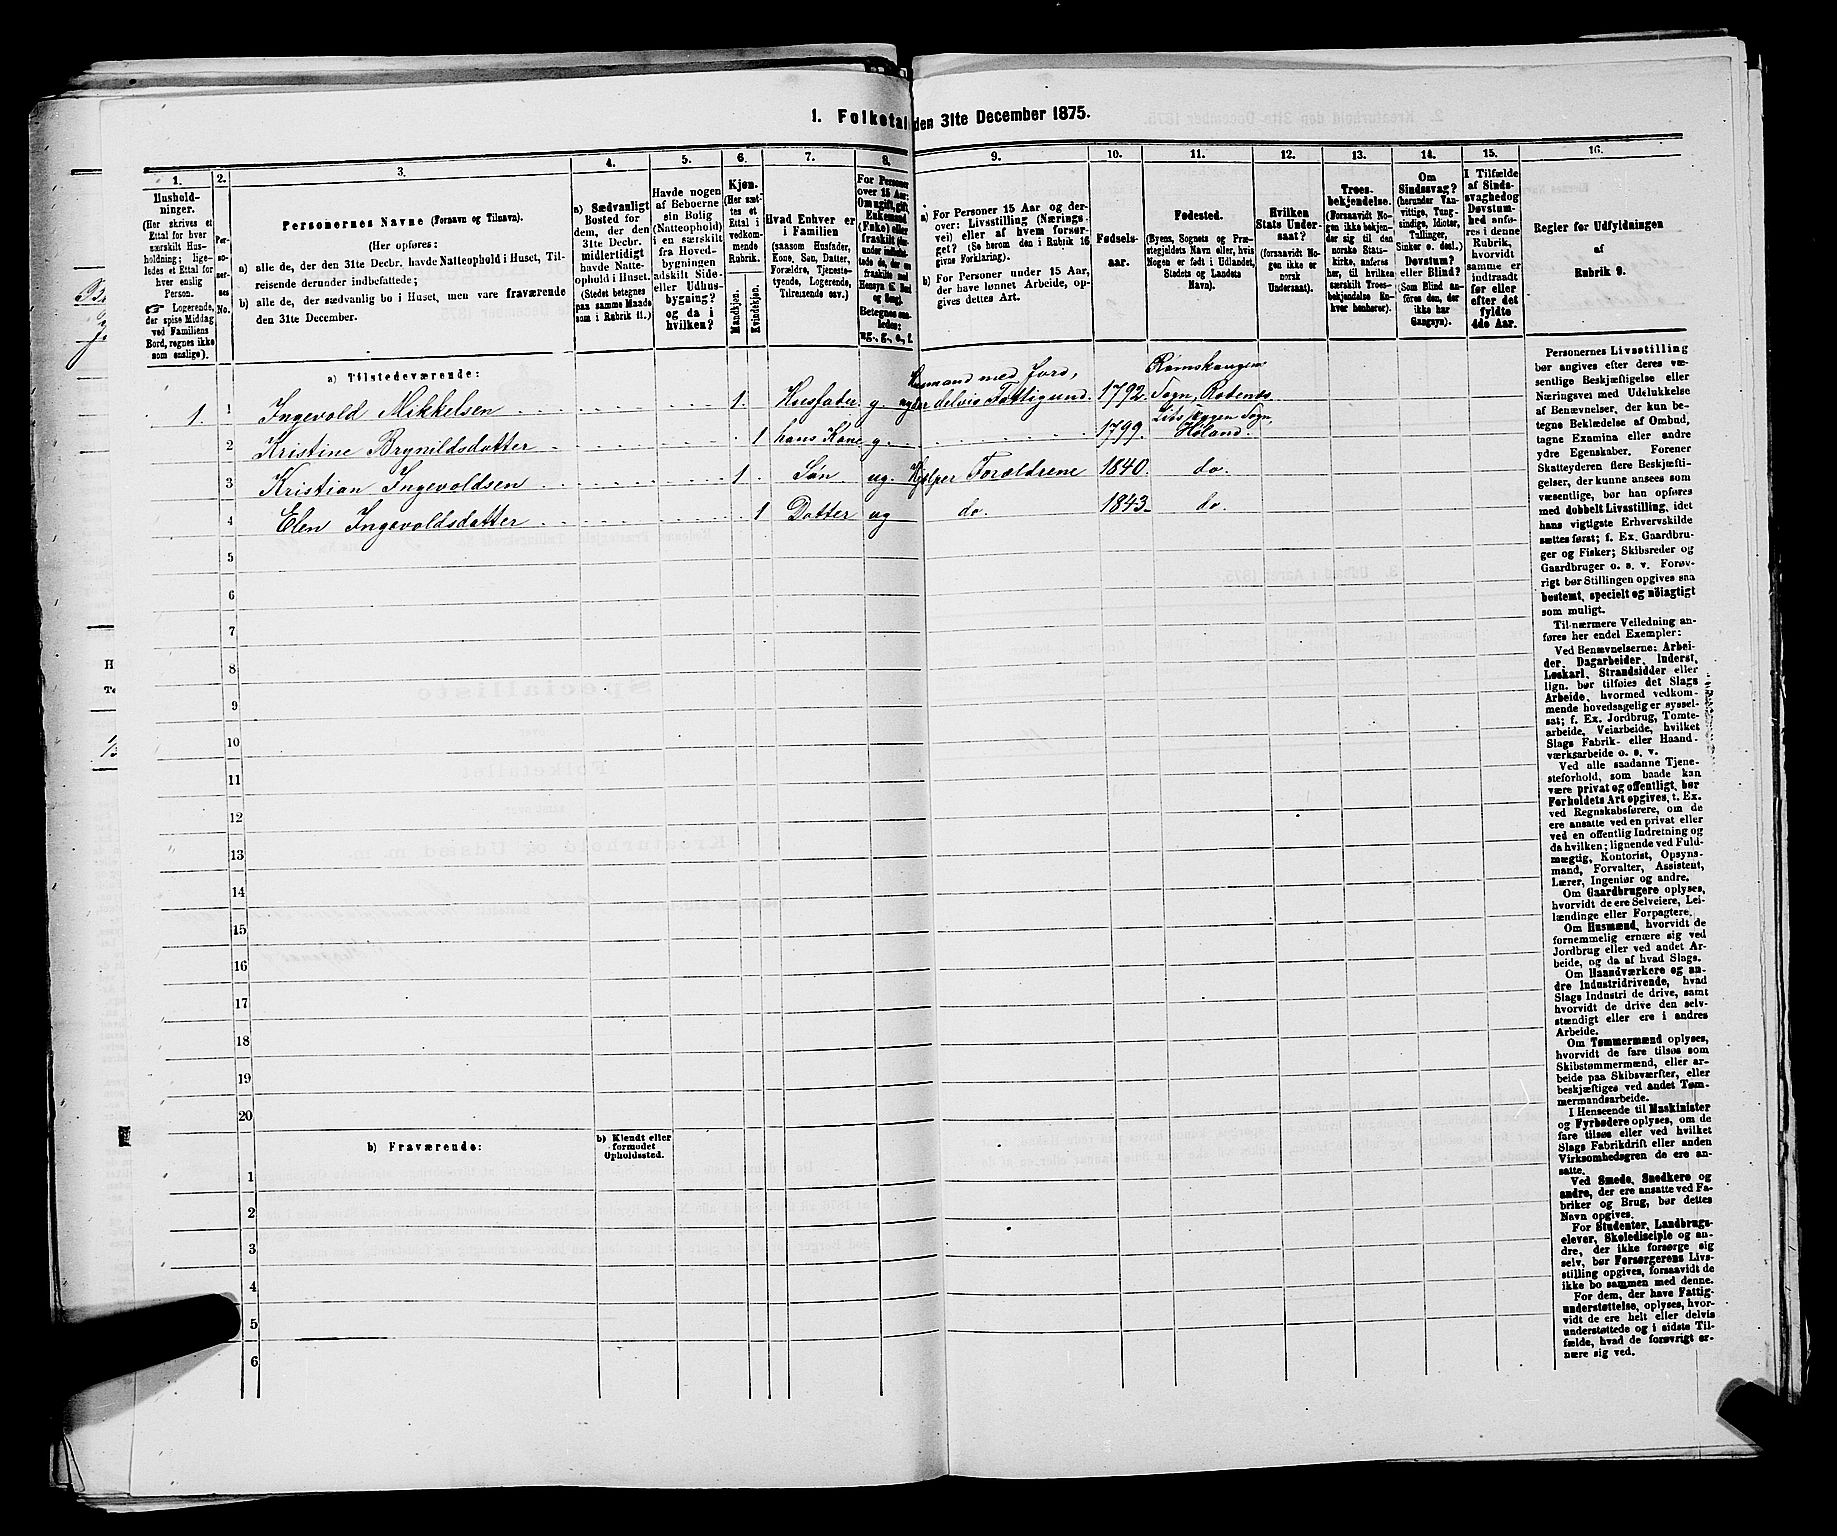 1. Folketal den 31te December 1875.
1.
2.
3.
4.
5.
6.
7.
8.
9.
10.
11.
12.
13.
14.
15.
16.
Hushold-
ninger.
(Her skrives et
Ettal for hver
særskilt Hus-
holdning; lige-
ledes et Ettal for
hver enslig
Person.
☞ Logerende,
der spise Middag
ved Familiens
Bord, regnes ikke
som enslige).
Per-
soner-
nes
No.
Personernes Navne (Fornavn og Tilnavn).
(Her opføres:
a) alle de, der den 31te Decbr. havde Natteophold i Huset, Til-
reisende derunder indbefattede;
b) alle de, der sædvanlig bo i Huset, men vare fraværende
den 31te December.
a) Sædvanligt
Bosted for
dem, der den
31te Decbr.
midlertidigt
havde Natte-
ophold i Huset.
(Stedet betegnes
paa samme Maade
som i Rubrik 11.)
Havde nogen
af Beboerne
sin Bolig
(Natteophold)
i en særskilt
fra Hoved-
bygningen
adskilt Side-
eller Udhus-
bygning?
og da i
hvilken?
Kjøn.
(Her sæt-
tes et
Ettal i
vedkom-
mende
Rubrik.
Mandkjøn.
Kvindekjøn.
Hvad Enhver er
i Familien
(saasom Husfader,
Kone, Søn, Datter,
Forældre, Tjeneste-
tyende, Logerende,
Tilreisende osv.)
For Personer
over 15 Aar:
Om ugift, gift,
Enkemand
(Enke) eller
fraskilt
Betegnes saa-
ledes:
ug., g., e., f.
a) For Personer 15 Aar og der-
over: Livsstilling (Nærings-
vei) eller af hvem forsør-
get? (Se herom den i Rubrik 16
givne Forklaring).
b) For Personer under 15 Aar,
der have lønnet Arbeide, op-
gives dettes Art.
Fødsels-
aar.
Fødested.
(Byens, Sognets og Præ-
stegjeldets Navn eller, hvis
Nogen er født i Udlandet,
Stedets og Landets
Navn).
Hvilken
Stats Under-
saat?
(forsaavidt No-
gen ikke er
norsk
Undersaat).
Troes-
bekjendelse.
(Forsaavidt No-
gen ikke bekjen-
der sig til den
norske Stats-
kirke, anføres
her, til hvilken
særskilt Troes-
bekjendelse En-
hver henhører).
Om
Sindssvag?
(herunder Van-
vittige, Tung-
sindige, Idioter,
Tullinger,
Sinker o. desl.).
Døvstum?
eller Blind?
(Som Blind an-
føres den, der
ikke har
Gangsyn).
I Tilfælde
af Sinds-
svaghed og
Døvstum-
hed anfø-
res i denne
Rubrik,
hvorvidt
samme er
indtraadt
før eller
efter det
fyldte
4de Aar.
Regler for Udfyldningen
af
Rubrik 9.
a) Tilstedeværende:
1. 1 Ingevold Mikkelsen 1. Husfader g Husmand med Jord, nyder delvis Fattigund. 1792. Rømskougen Sogn, Rødenæs
2 Kristine Brynildsdatter 1 hans Kone g. 1799. Sogn, Høland.
3 Kristian Ingevoldsen 1 Søn ug. Hjelper Forældrene 1840. do.
4 Elen Ingevoldsdatter 1 Datter ug do. 1843. do.
5
6
7
8
9
10
11
12
13
14
15
16
17
18
19
20
b) Fraværende:
b) Kjendt eller
formodet
Opholdssted.
1
2
3
4
5
6
Personernes Livsstilling
bør angives efter deres væ-
sentlige Beskjæftigelse eller
Næringsvei med Udelukkelse
af Benævnelser, der kun be-
tegne Beklædelse af Ombud,
tagne Examina eller andre
ydre Egenskaber. Forener
Skatteyderen flere Beskjæfti-
gelser, der kunne ansees som
væsentlige, bør han opføres
med dobbelt Livsstilling, idet
hans vigtigste Erhvervskilde
sættes først; f. Ex. Gaardbru-
ger og Fisker; Skibsreder og
Gaardbruger o. s. v. Forøv-
rigt bør Stillingen opgives saa
bestemt, specielt og nøiagtigt
som muligt.
Til nærmere Veiledning an-
føres her endel Exempler:
Ved Benævnelserne: Arbei-
der, Dagarbeider, Inderst,
Løskarl, Strandsidder eller
lign. bør tilføies det Slags
Arbeide, hvormed vedkom-
mende hovedsagelig er syssel-
sat; f. Ex. Jordbrug, Tomte-
arbeide, Veiarbeide, hvilket
Slags Fabrik- eller Haand-
værksarbeide o. s. v.
Ved alle saadanne Tjene-
steforhold, som baade kan
være privat og offentligt, bør
Forholdets Art opgives, t. Ex.
ved Regnskabsførere, om de
ere ansatte ved en privat eller
ved en offentlig Indretning og
da hvilken; lignende ved Fuld-
mægtig, Kontorist, Opsyns-
mand, Forvalter, Assistent,
Lærer, Ingeniør og andre.
Om Gaardbrugere oplyses,
hvorvidt de ere Selveiere, Lei-
lændinge eller Forpagtere.
Om Husmænd, hvorvidt de
fornemmelig ernære sig ved
Jordbrug eller ved andet Ar-
beide, og da af hvad Slags.
Om Haandværkere og an-
dre Industridrivende, hvad
Slags Industri de drive, samt
hvorvidt de drive den selv-
stændigt eller ere i andres
Arbeide.
Om Tømmermænd oplyses,
hvorvidt de fare tilsøs som
Skibstømmermænd, eller ar-
beide paa Skibsværfter, eller
beskjæftiges ved andet Tøm-
mermandsarbeide.
I Henseende til Maskinister
og Fyrbødere oplyses, om de
fare tilsøs eller ved hvilket
Slags Fabrikdrift eller anden
Virksomhedsgren de ere an-
satte.
Ved Smede, Snedkere og
andre, der ere ansatte ved Fa-
briker og Brug, bør dettes
Navn opgives.
For Studenter, Landbrugs-
elever, Skoledisciple og an-
dre, der ikke forsørge sig
selv, bør Forsørgerens Livs-
stilling opgives, forsaavidt de
ikke bo sammen med denne.
For dem, der have Fattig-
understøttelse, oplyses, hvor-
vidt de ere helt eller delvis
understøttede og i sidste Til-
fælde, hvad de forøvrigt er-
nære sig ved.